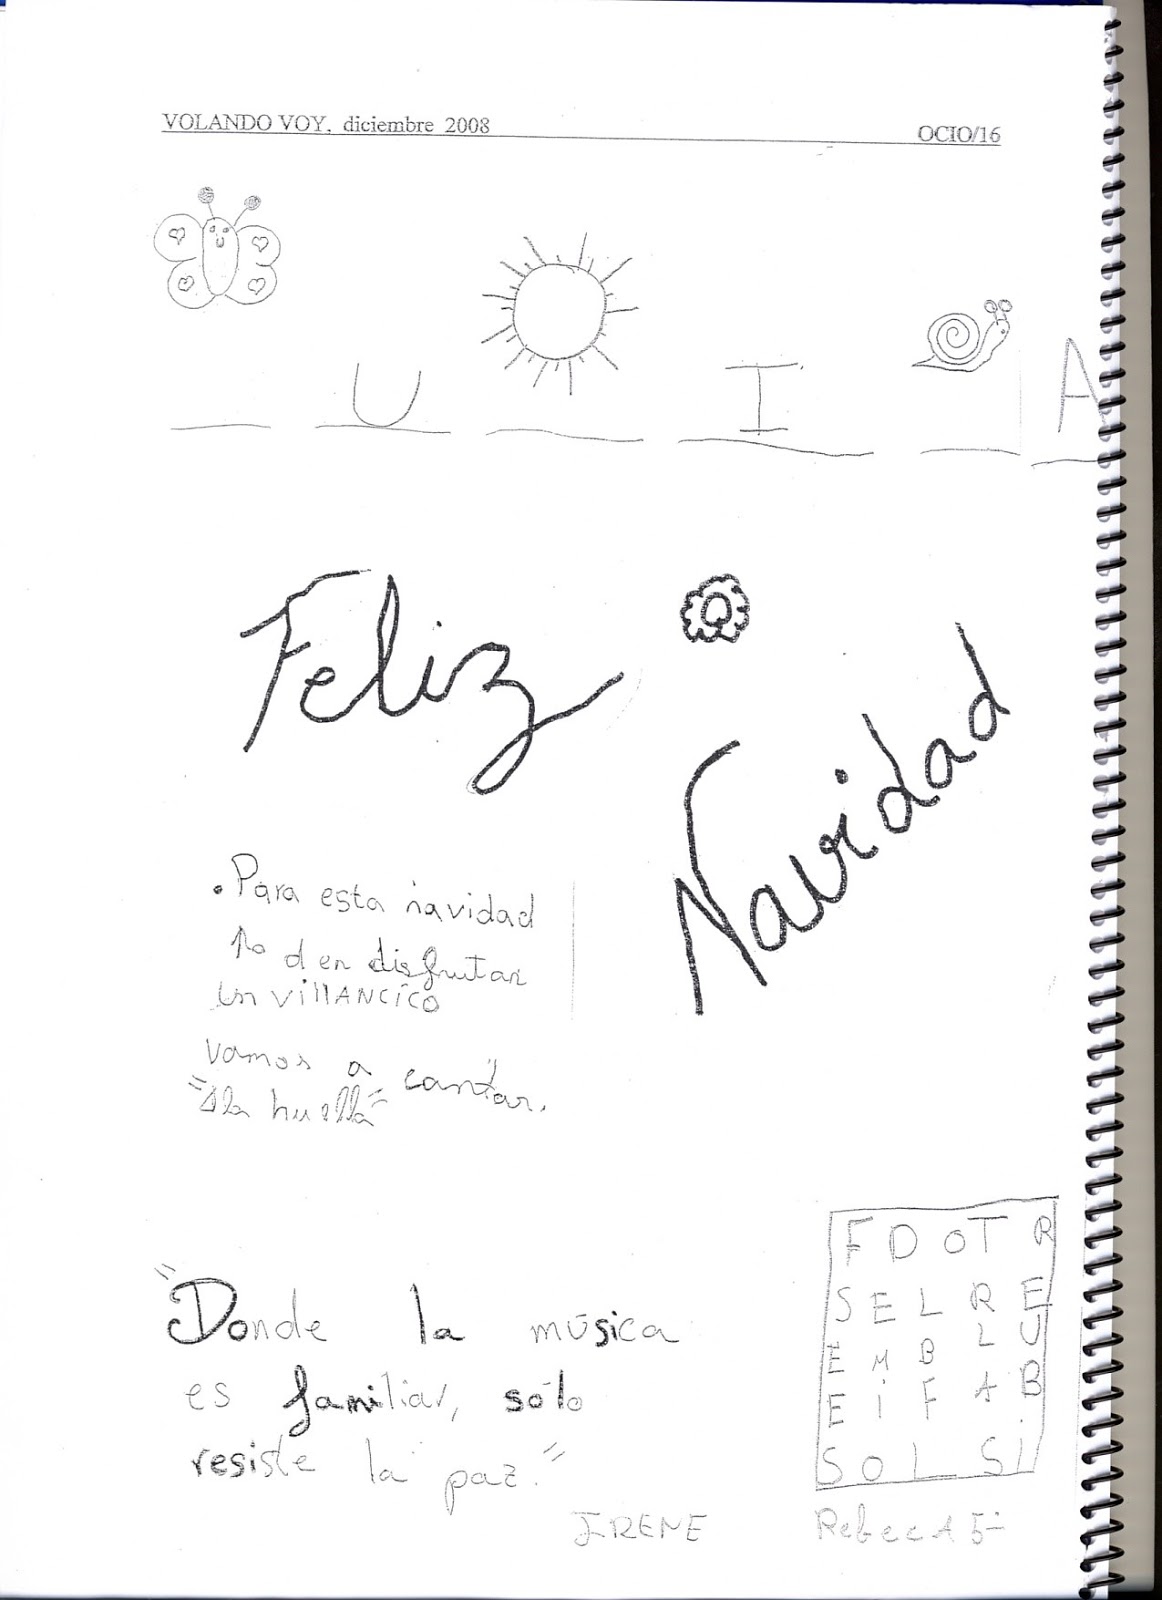 VOLANDO VOY, diciembre 2008 OCIO/16
U I A
Feliz
Navidad
. Para esta navidad
disfrutar
un villANCICO
vamos a cantar.
huella"
"Donde la música
es familiar, sólo
resiste la paz."
IRENE
F D O T R
S E L R E
E M B L U
E i F A B
S O L S i
Rebeca